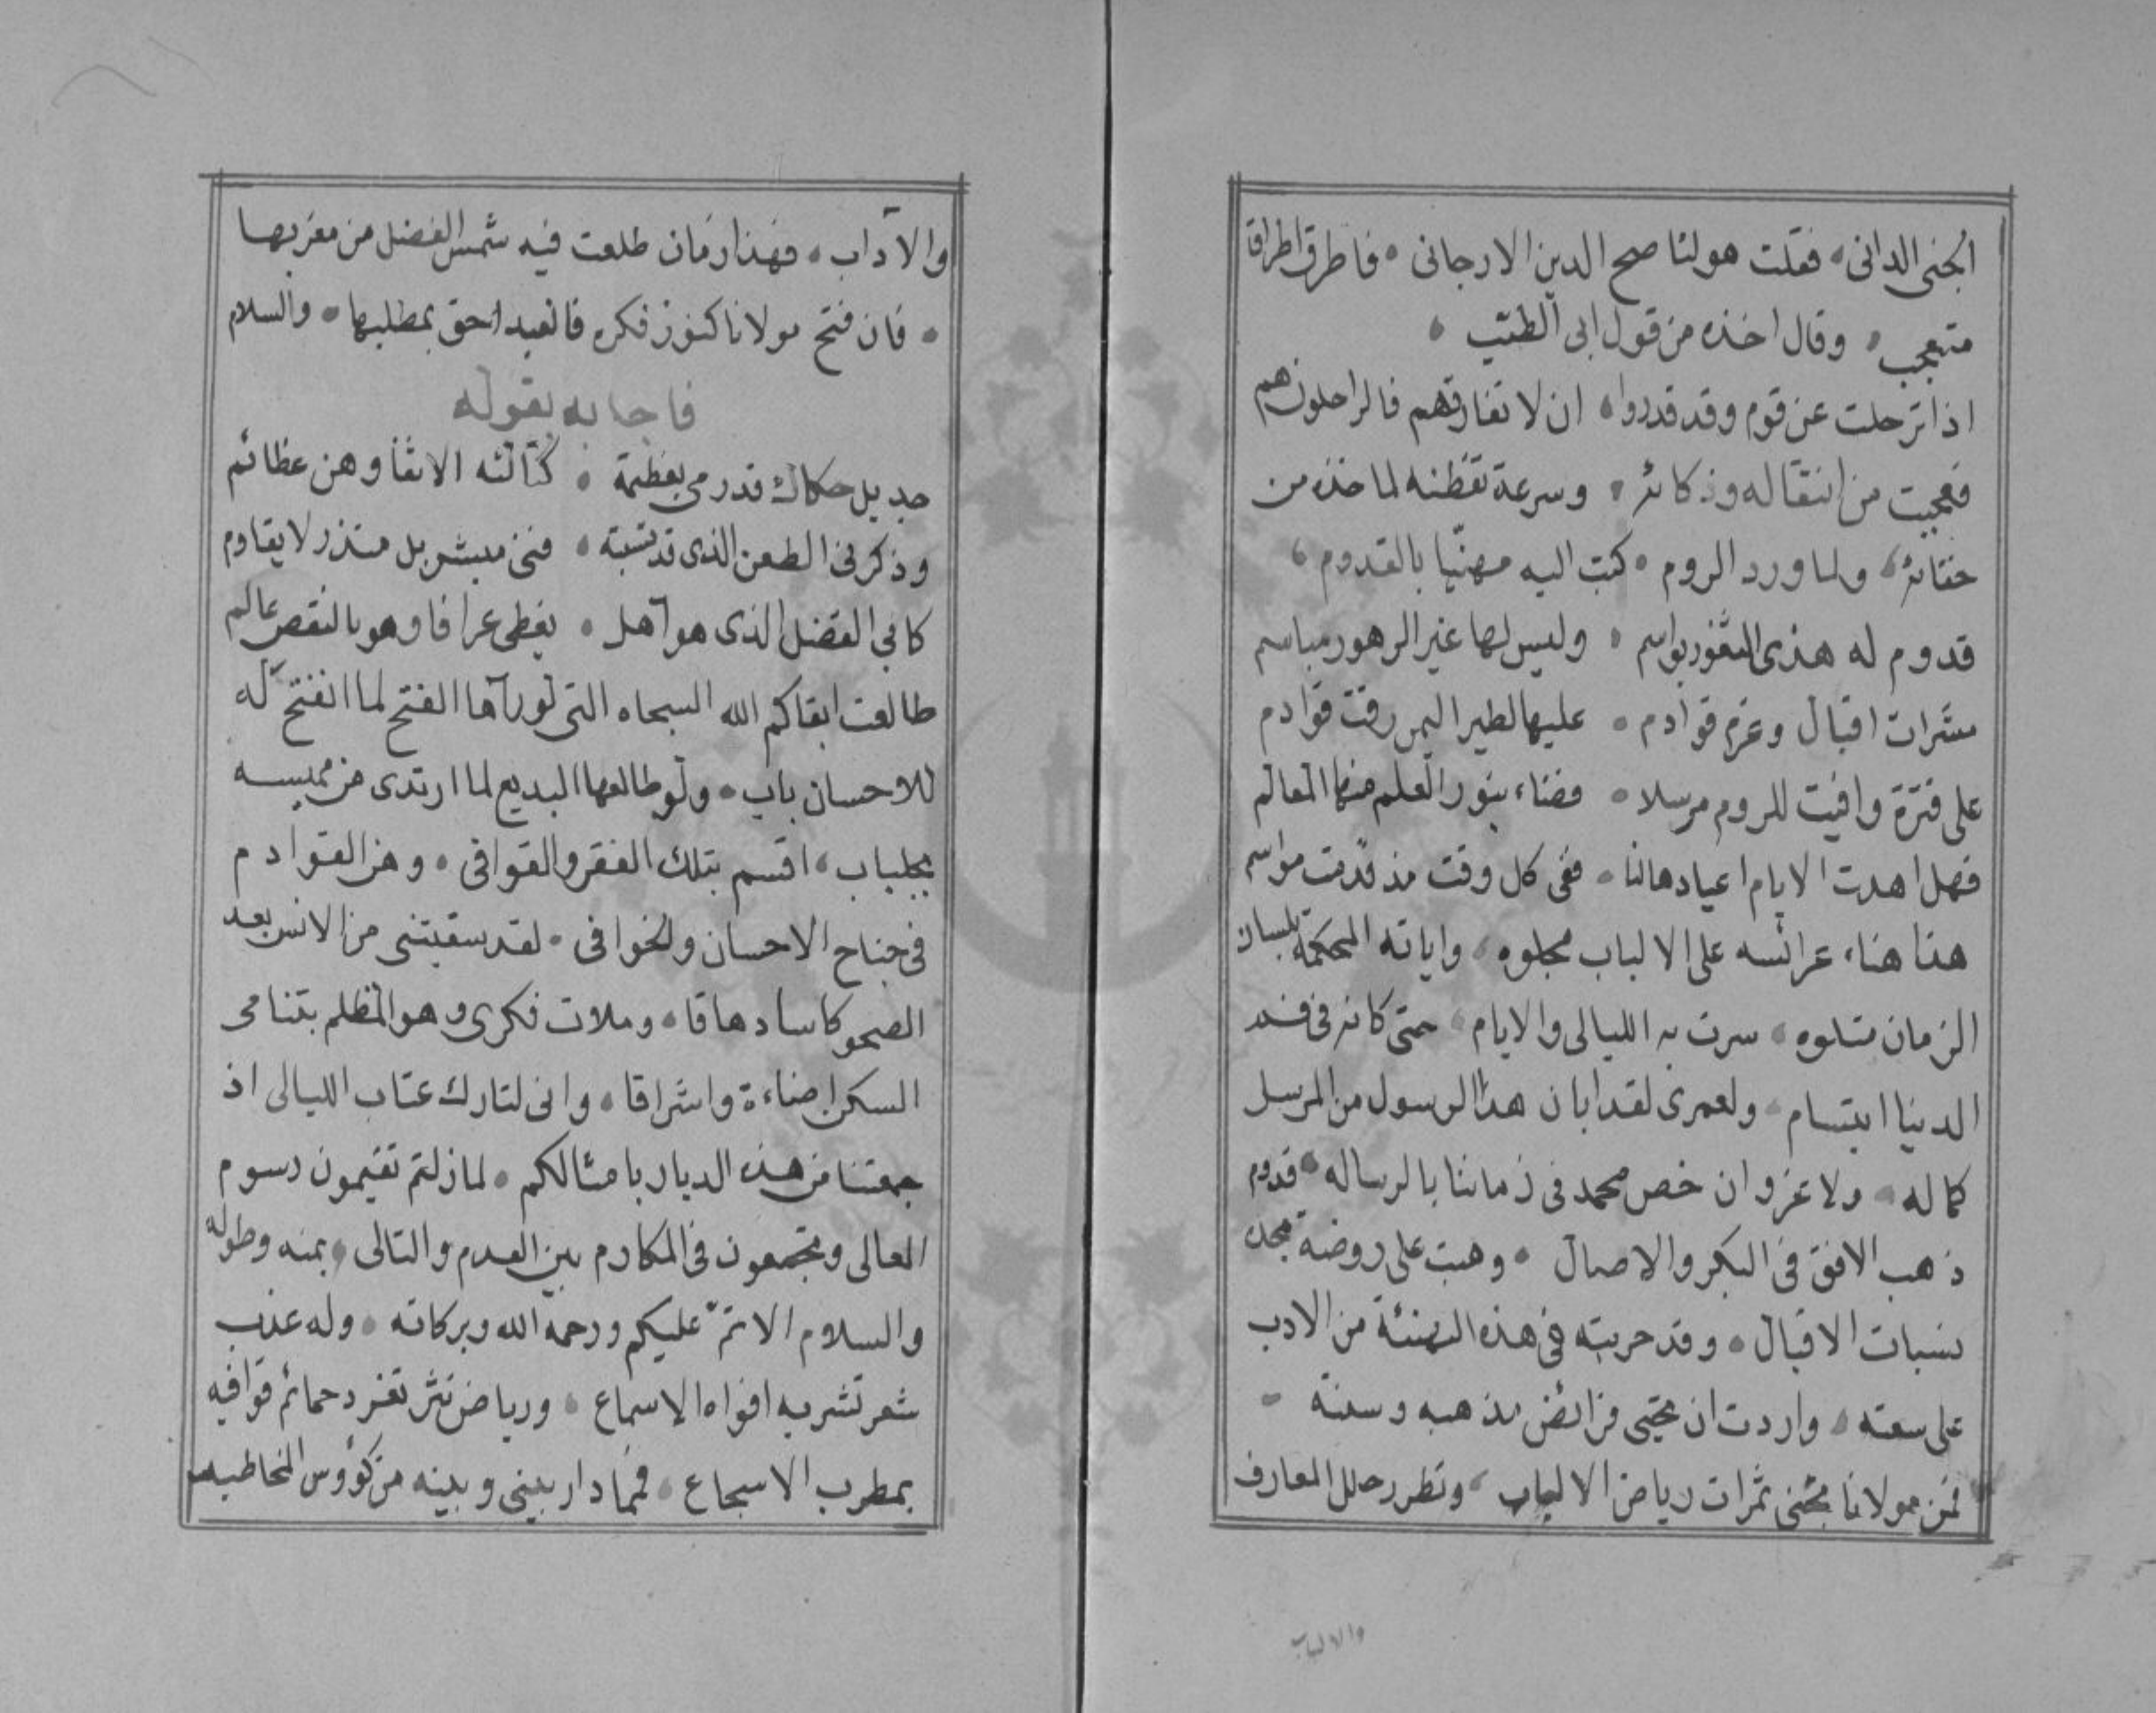 الجنى الدانى • فقلت هو لنا صح الدين الارجانى • فاطرق اطراق
متعجب • وقال اخذه من قول ابى الطيب •
اذا ترحلت عن قوم وقد قدروا • ان لا تفارقهم فالراحلون هم
فعجبت من انتقاله وذكائه • وسرعة تفطنه لما خذه من
خفائه • ولما ورد الروم • كتبت اليه مهنّيا بالقدوم •
قدوم له هذى الثغور بواسم • وليس لها غير الزهور مباسم
مسّرات اقبال وعزم قوادم • عليها لطير اليمن رفت قوادم
على فترة وافيت للروم مرسلا • فضاء بنور العلم منها المعالم
فهل اهدت الايام اعيادها لنا • ففى كل وقت مذ قدمت مواسم
هذا هناء عرائسه على الالباب مجلوه • واياته المحكمة بلسان
الزمان متلوه • سرت به الليالى والايام • حتى كانه فى فم
الدنيا ابتسام • ولعمرى لقد ابان هذا الرسول من المرسل
كماله • ولا غزو ان خص محمد فى زماننا بالرساله • قدوم
ذهب الافق فى البكر والاصال • وهبت على روضة مجده
نسمات الاقبال • وقد جريته فى هذه التهنئة من الادب
على سعته • واردت ان تحيى فرائض مذهبه وسنته •
فمن مولانا تجتنى ثمرات رياض الالباب • وتطرز حلل المعارف
والالباب
والآداب • فهذا زمان طلعت فيه شمس الفضل من مغربها
• فان فتح مولانا كنوز فكره فالعبد احق بمطلبها • والسلام
فاجابه بقوله
جديل حكاك قد رمى بعظيمة • كثالثه الاثفا وهن عظائم
وذكرنى الطعن الذى قد نسيته • فنى مبشر بل منذر لا يقاوم
كانى الفضل الذى هو آهل • يغطى عرافا وهو بالنقص عالم
طالعت ابقاكم الله السجاه التى لو رآها الفتح لما انفتح له
للاحسان باب • ولو طالعها البديع لما ارتدى من مميسه
بجلباب • اقسم بتلك الفقر والقوافى • وهن القوادم
فى جناح الاحسان والخوافى • لقد سقيتنى من الانس بعد
الصحو كاسا دهاقا • وملات فكرى وهو المظلم بتنامى
السكر اضاءة واشراقا • وانى لتارك عتاب الليالى اذ
جمعتنا من هذه الديار بامثالكم • لما زلتم تقيمون رسوم
المعالى وتجمعون فى المكارم بين المقدم والتالى • بمنه وطوله
والسلام الاتمّ عليكم ورحمة الله وبركاته • وله عذب
شعر تشربه افواه الاسماع • ورياض نثر تغرد حمائم قوافيه
بمطرب الاسجاع • فمما دار بينى وبينه من كؤوس المخاطبه